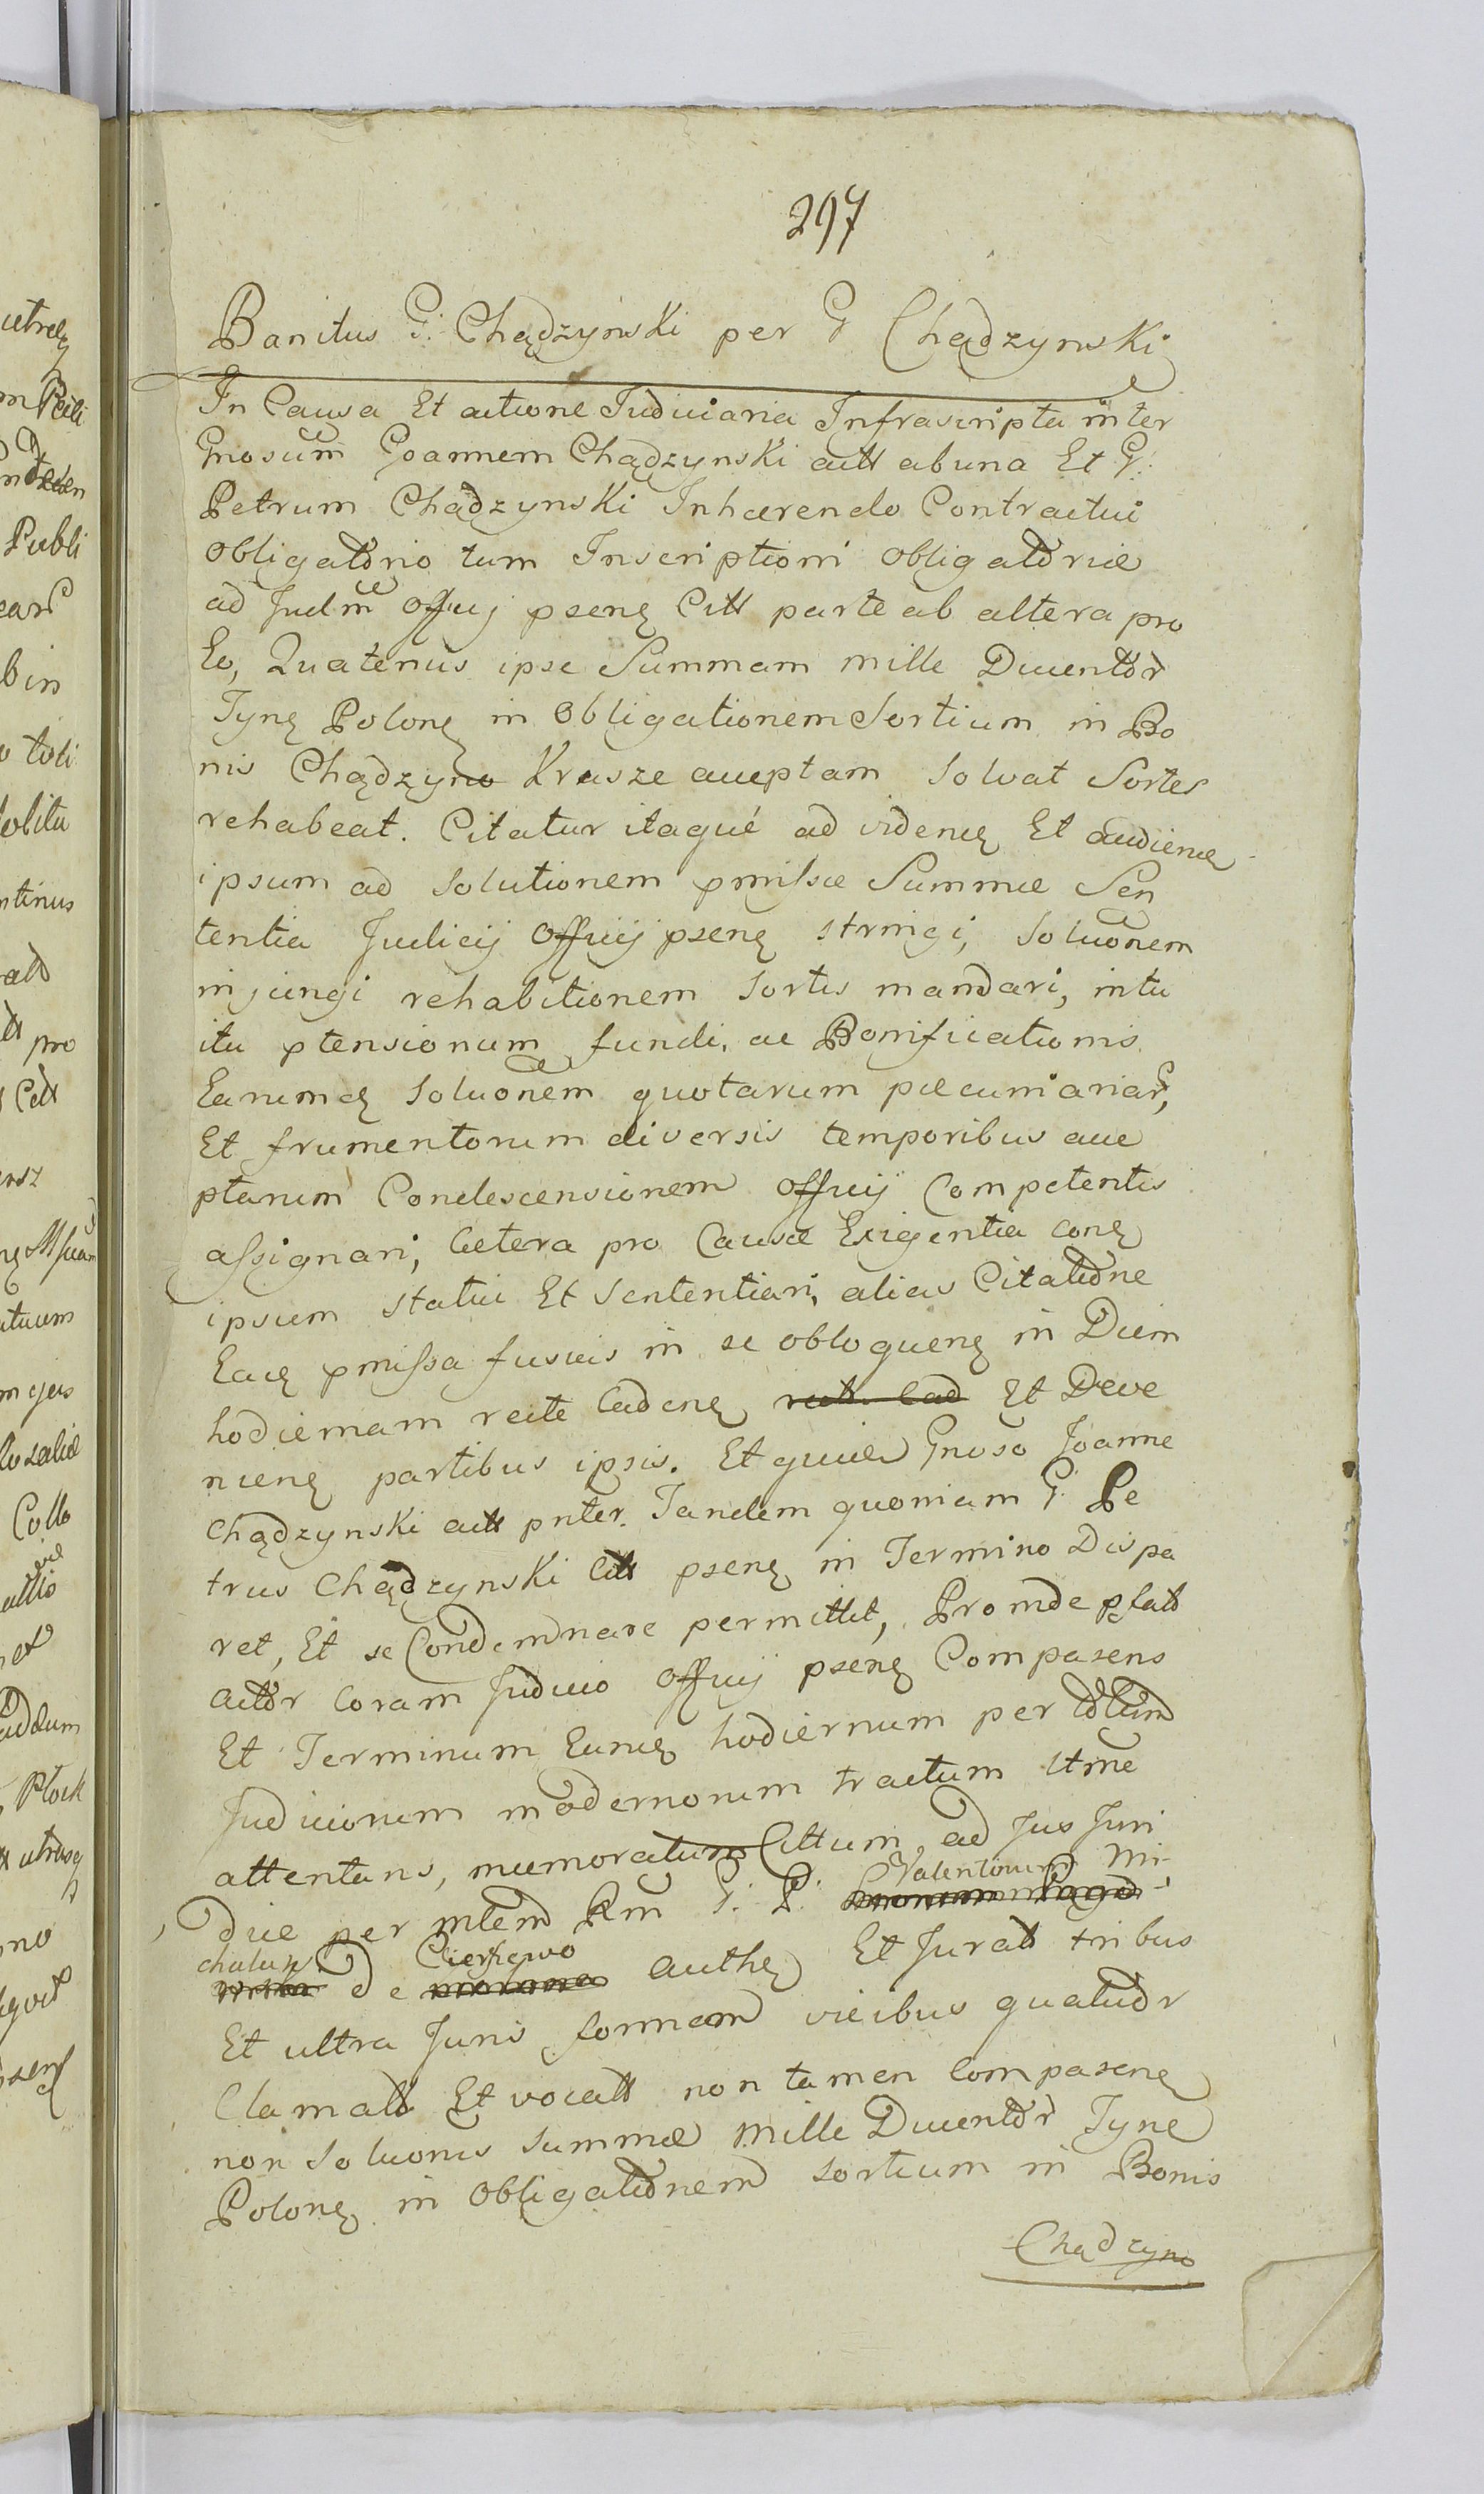 297
Banitus G. Chądzynski per G Chądzynski
In Causa Et actione Judiciaria Infrascripta inter
Gnosum Joannem Chądzynski act ab una Et G:
Petrum Chądzynski Inhærendo Contractui
obligatorio tum Inscriptioni obligatoriæ
ad Judm officij psenę Citt parte ab altera pro
Eo, Quatenus ipse Summam mille Ducentor
Tynę Polonę in obligationem Sortium in Bo
nis Chądzyno Krusze acceptam solvat Sortes
rehabeat. Citatur itaquè ad videnę Et audienę
ipsum ad solutionem pmissæ Summæ Sen
tentia Judicij officij psenę stringi, soluonem
injungi rehabitionem sortis mandari, intu
itu ptensionum fundi, ac Bonificationis
Earumdę soluonem quotarum pæcuniariar,
Et frumentorum diversis temporibus acce
ptarum Condescensionem officij Competentis
assignari, Cætera pro Causæ Exigentia conę
ipsum statui Et sententiari, alias Citatione
Eacę pmissa fusius in se obloquenę in Diem
hodiernam recte Cadenę rect. Cad Et Deve
nienę partibus ipsis. Et quid Gnoso Joanne
Chądzynski act pnter. Tandem quoniam G. Pe
trus Chądzynski Citt psenę in Termino Dispa
ret, Et se Condemnare permittit, Proinde pfat
actor Coram Judicio officij psenę Comparens
Et Terminum Eunę hodiernum per totum
Judiciorum modernorum tractum ltme
attentans, memoratum Cittum, ad Jus Juri
Valentinum Mi-
dice per mlem Rm G. P.
chalun Cierpiewo
de authę Et Jurat tribus
Et ultra Juris formam vicibus quatuor
Clamatt Et vocatt non tamen Comparenę
non soluonis summæ mille Ducentor Tyne
Polonę in obligationem sortium in Bonis
Chądzyno